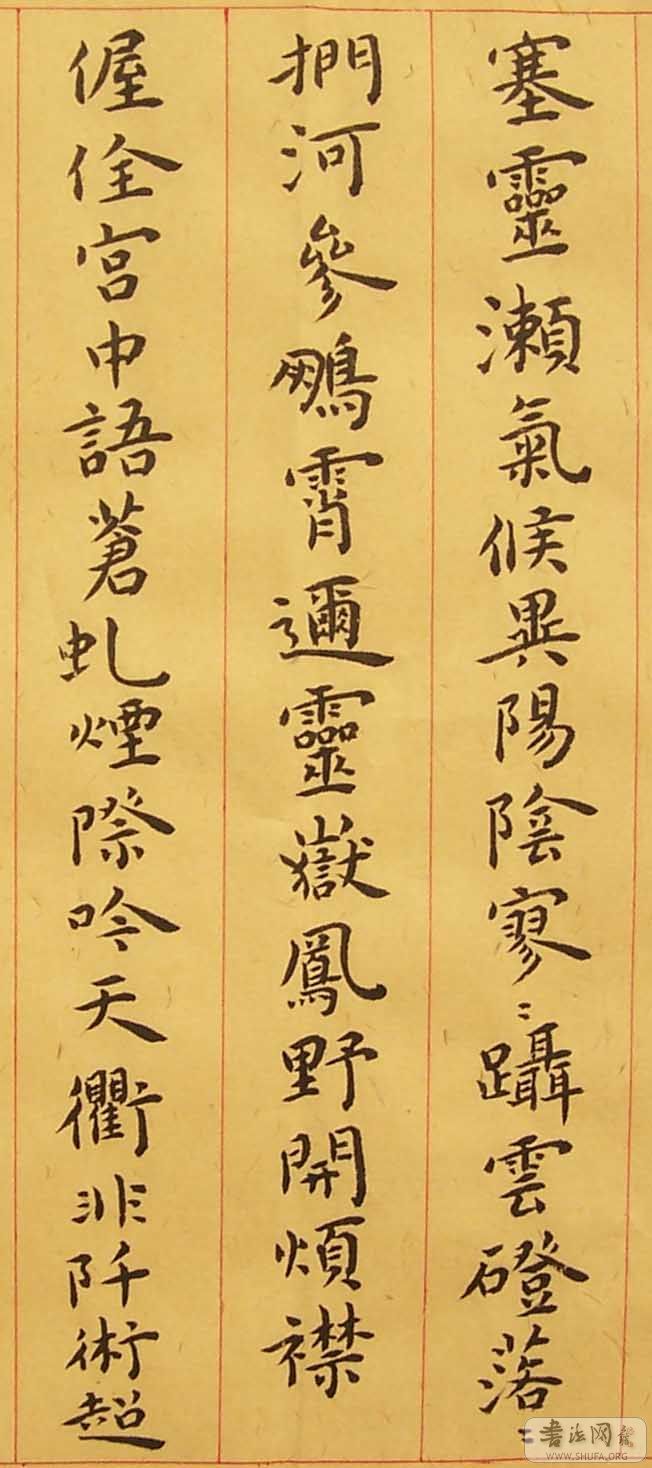 塞靈瀨氣候異陽陰寥〻躡雲磴落〻
捫河參鵰霄邇靈嶽鳳野開煩襟
偓佺宮中語蒼虬煙際吟天衢非阡術超
書法网
WWW.SHUFA.ORG